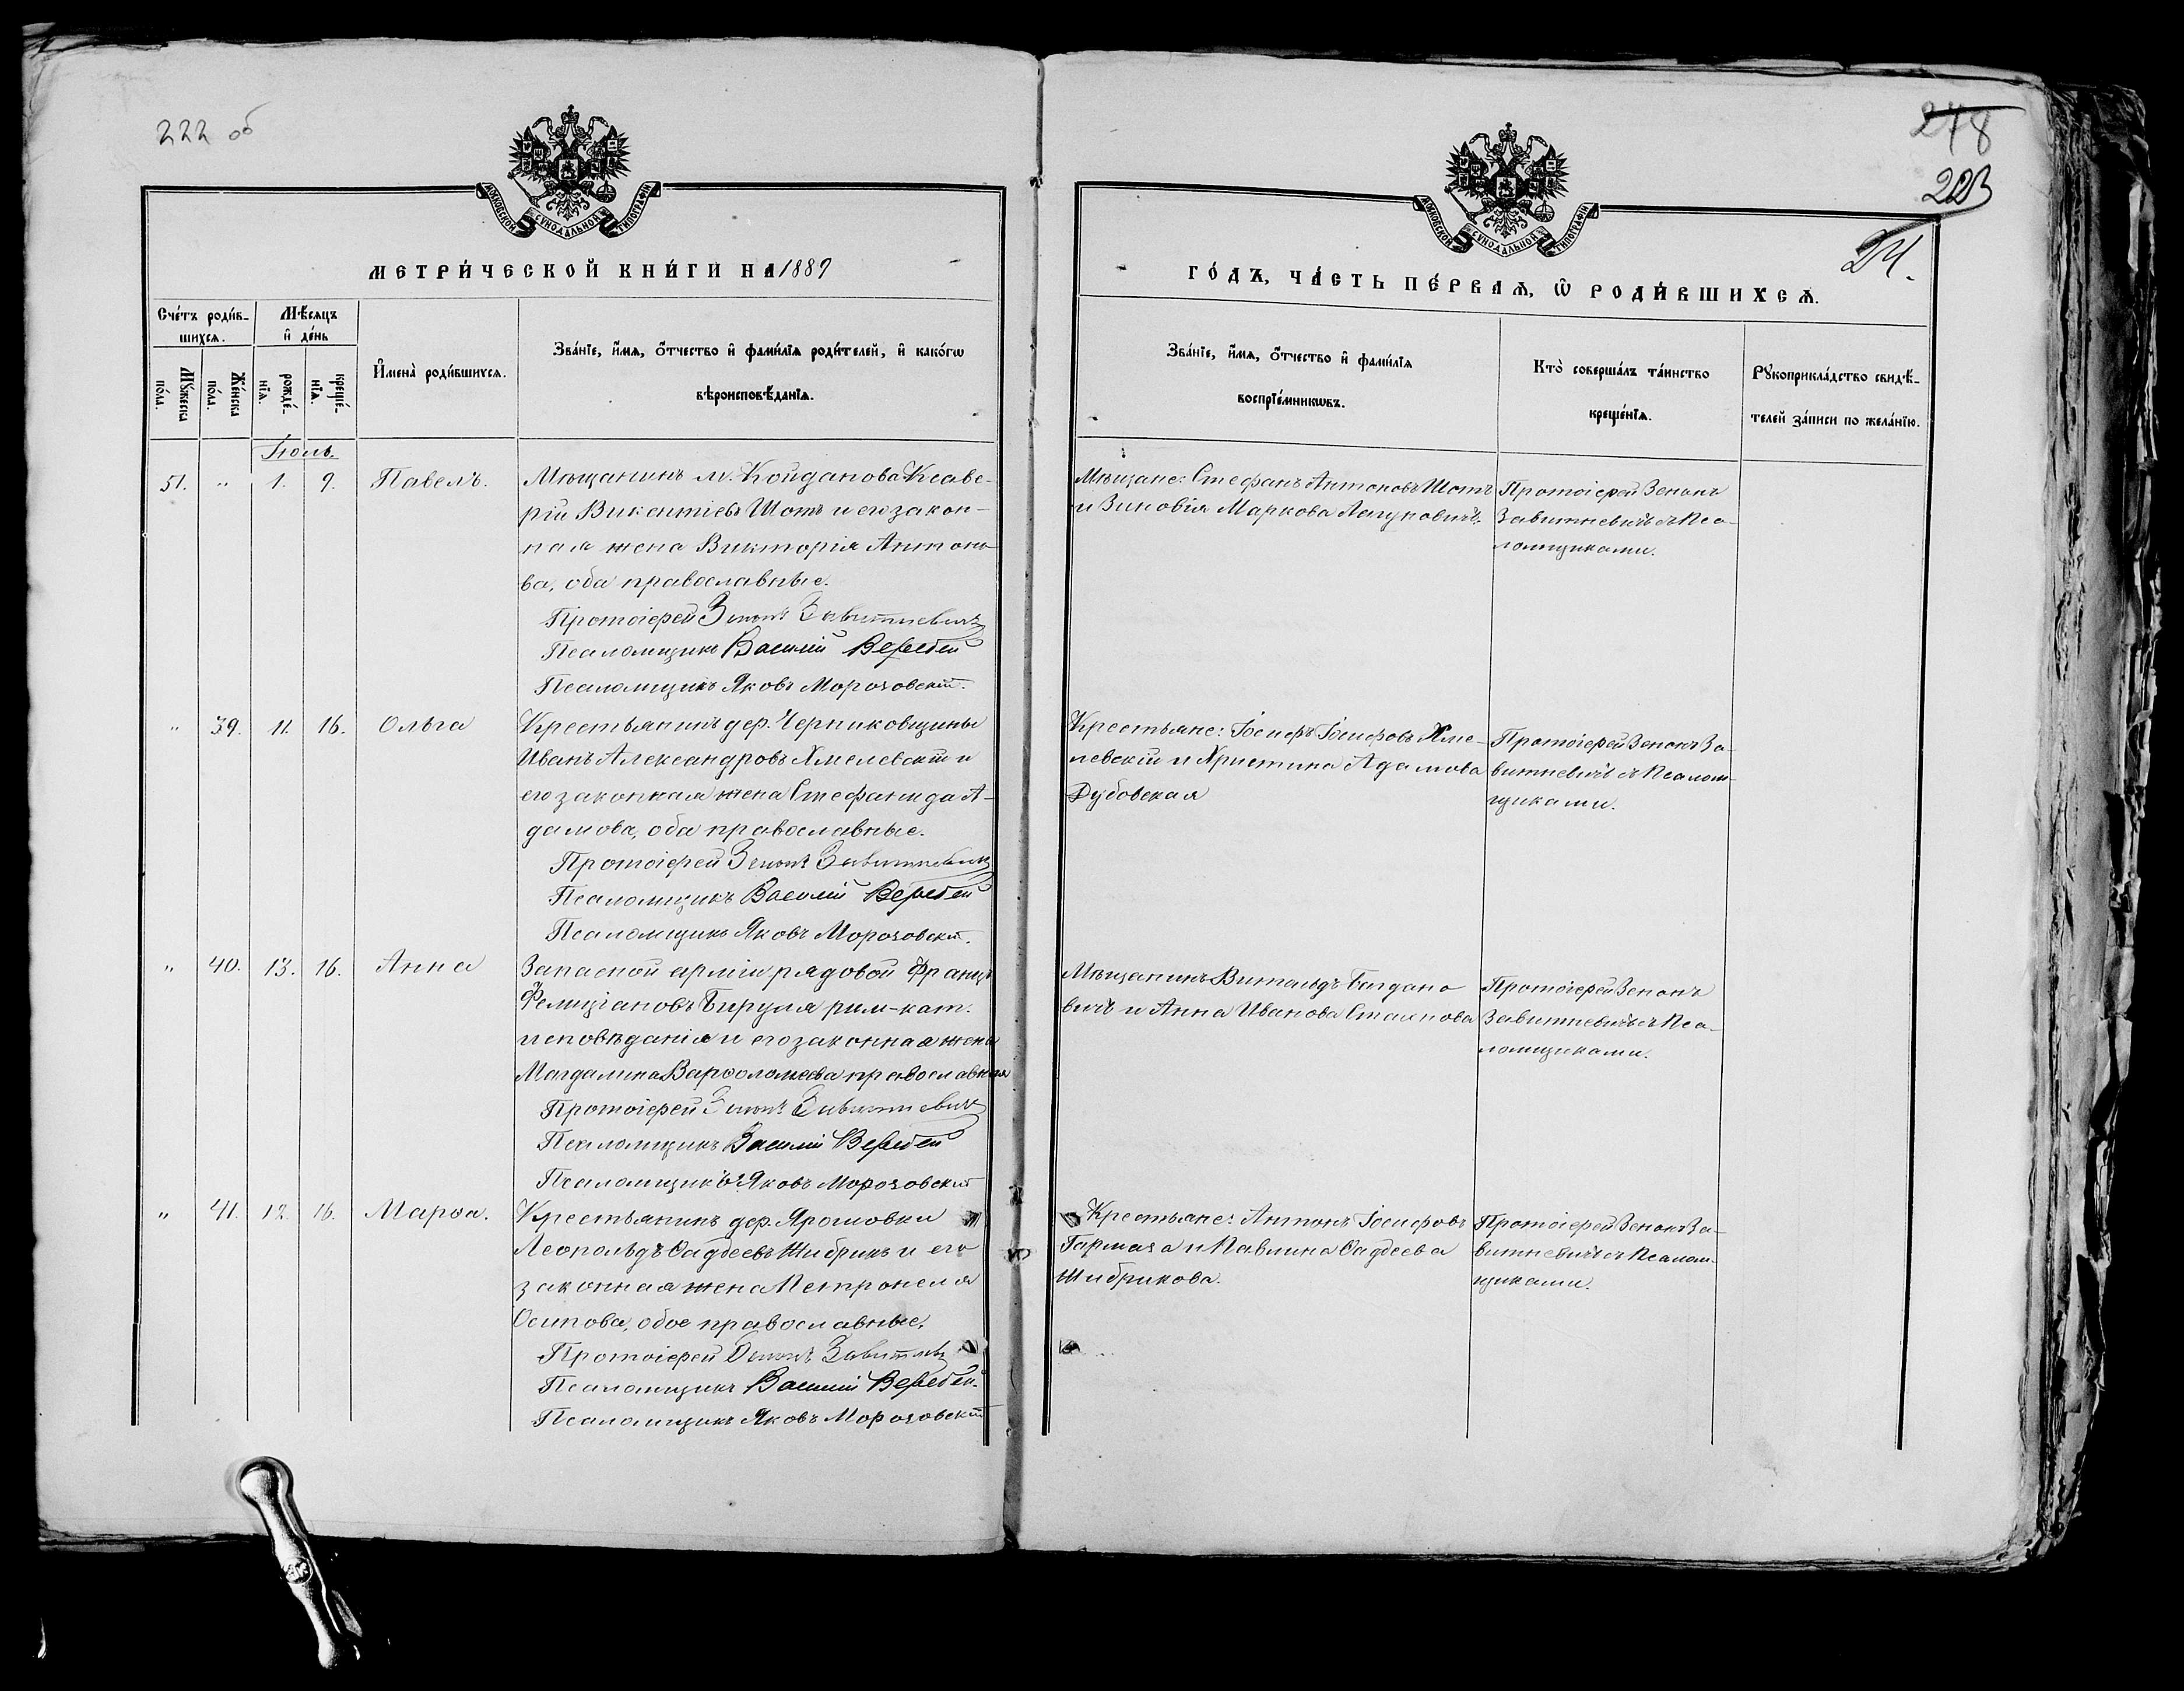 222 об
МОСКОВСКОЙ СѴНОДАЛЬНОЙ ТИПОГРАФІИ
МЕТРИ́ЧЕСКОЙ КНИ́ГИ НА 1889
Сче́тъ роди́в-
шихсѧ.
Мѣ́сѧцъ
и҆ де́нь
Мꙋ́жеска
по́ла.
Же́нска
по́ла.
рожде́-
нїѧ.
креще́-
нїѧ.
И҆мена̀ роди́вшихсѧ.
Зва́нїе, и҆́мѧ, ѻ҆́тчество и҆ фами́лїѧ роди́телей, и҆ како́гѡ
вѣроисповѣ́данїѧ.
Іюль.
51. " 1. 9. Павелъ. Мѣщанинъ м. Койданова Ксаве-
рій Викентіевъ Шотъ и его закон-
ная жена Викторія Антоно-
ва, оба православные.
Протоіерей Зенонъ Завитневичъ
Псаломщикъ Василій Веребей
Псаломщикъ Яковъ Морозовскій.
" 39. 11. 16. Ольга Крестьянинъ дер. Черниковщины
Иванъ Александровъ Хмелевскій и
его законная жена Стефанида А-
дамова, оба православные.
Протоіерей Зенонъ Завитневичъ
Псаломщикъ Василій Веребей
Псаломщикъ Яковъ Морозовскій.
" 40. 13. 16. Анна Запасной арміи рядовой Францъ
Фелиціановъ Бируля рим-кат.
исповѣданія и его законная жена
Магдалина Варѳоломеева православная
Протоіерей Зенонъ Завитневичъ
Псаломщикъ Василій Веребей
Псаломщикъ Яковъ Морозовскій
" 41. 12. 16. Марѳа. Крестьянинъ дер. Ярошовки
Леопольдъ Фадѣевъ Шибрикъ и его
законная жена Петронеля
Осипова, обое православные.
Протоіерей Зенонъ Завитнев
Псаломщикъ Василій Веребей.
Псаломщикъ Яковъ Морозовскій
278
223
24.
МОСКОВСКОЙ СѴНОДАЛЬНОЙ ТИПОГРАФІИ
ГО́ДЪ, ЧА́СТЬ ПЕ́РВАѦ, Ѽ РОДИ́ВШИХСѦ.
Зва́нїе, и҆́мѧ, ѻ҆́тчество и҆ фами́лїѧ
воспрїе́мникѡвъ.
Кто̀ соверша́лъ та́инство
креще́нїѧ.
Рꙋкоприкла́дство свидѣ́-
телей за́писи по жела́нїю.
Мѣщане: Стефанъ Антоновъ Шотъ
и Зиновія Маркова Лапуновичъ.
Протоіерей Зенонъ
Завитневичъ съ Пса-
ломщиками.
Крестьяне: Іосифъ Іосифовъ Хме-
левскій и Христина Адамова
Дубовская
Протоіерей Зенонъ За-
витневичъ съ Псалом-
щиками.
Мѣщанинъ Витольдъ Богдано
вичъ и Анна Иванова Стаянова
Протоіерей Зенонъ
Завитневичъ съ Пса-
ломщиками.
Крестьяне: Антонъ Іосифовъ
Гармаза и Павлина Фадѣева
Шибрикова.
Протоіерей Зенонъ За-
витневичъ съ Псалом-
щиками.